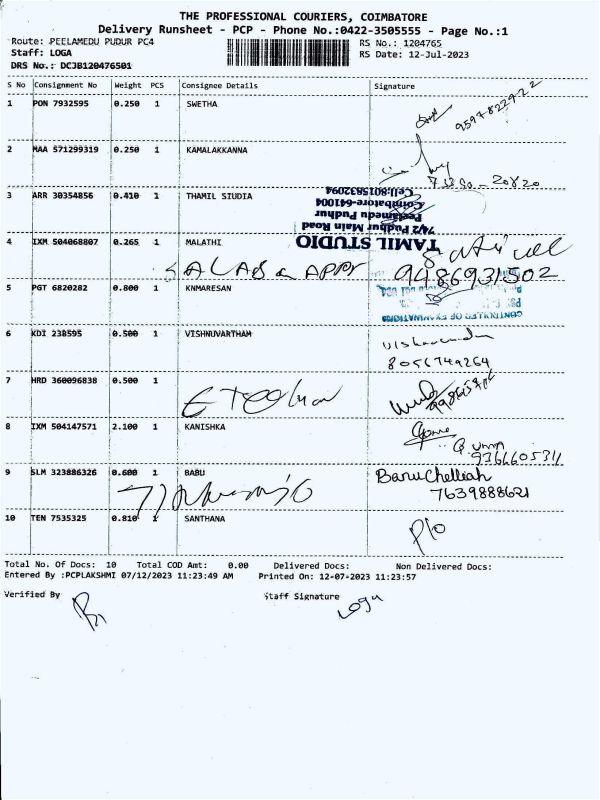 THE PROFESSIONAL COURIERS, COIMBATORE
Delivery Runsheet - PCP - Phone No.:0422-3505555 - Page No.:1
Route: PEELAMEDU PUDUR PC4 RS No.: 1204765
Staff: LOGA RS Date: 12-Jul-2023
DRS No.: DCJB120476501
S No Consignment No Weight PCS Consignee Details Signature
1 PON 7932595 0.250 1 SWETHA
2 MAA 571299319 0.250 1 KAMALAKKANNA
3 ARR 30354856 0.410 1 THAMIL SIUDIA
TAMIL STUDIO
74/2 Pudhur Main Road
Peelamedu Pudhur
Coimbatore-641004
Cell:8015832094
4 IXM 504068807 0.265 1 MALATHI
9486931502
5 PGT 6820282 0.800 1 KNMARESAN
CONTROLLER OF EXAMINATIONS
6 KDI 238595 0.500 1 VISHNUVARTHAM
8056749264
7 HRD 360096838 0.500 1
8 IXM 504147571 2.100 1 KANISHKA
9366605311
9 SLM 323886326 0.600 1 BABU
Banu Chelliah
7639888621
10 TEN 7535325 0.810 1 SANTHANA
P/o
Total No. Of Docs: 10 Total COD Amt: 0.00 Delivered Docs: Non Delivered Docs:
Entered By :PCPLAKSHMI 07/12/2023 11:23:49 AM Printed On: 12-07-2023 11:23:57
Verified By Staff Signature
Loga